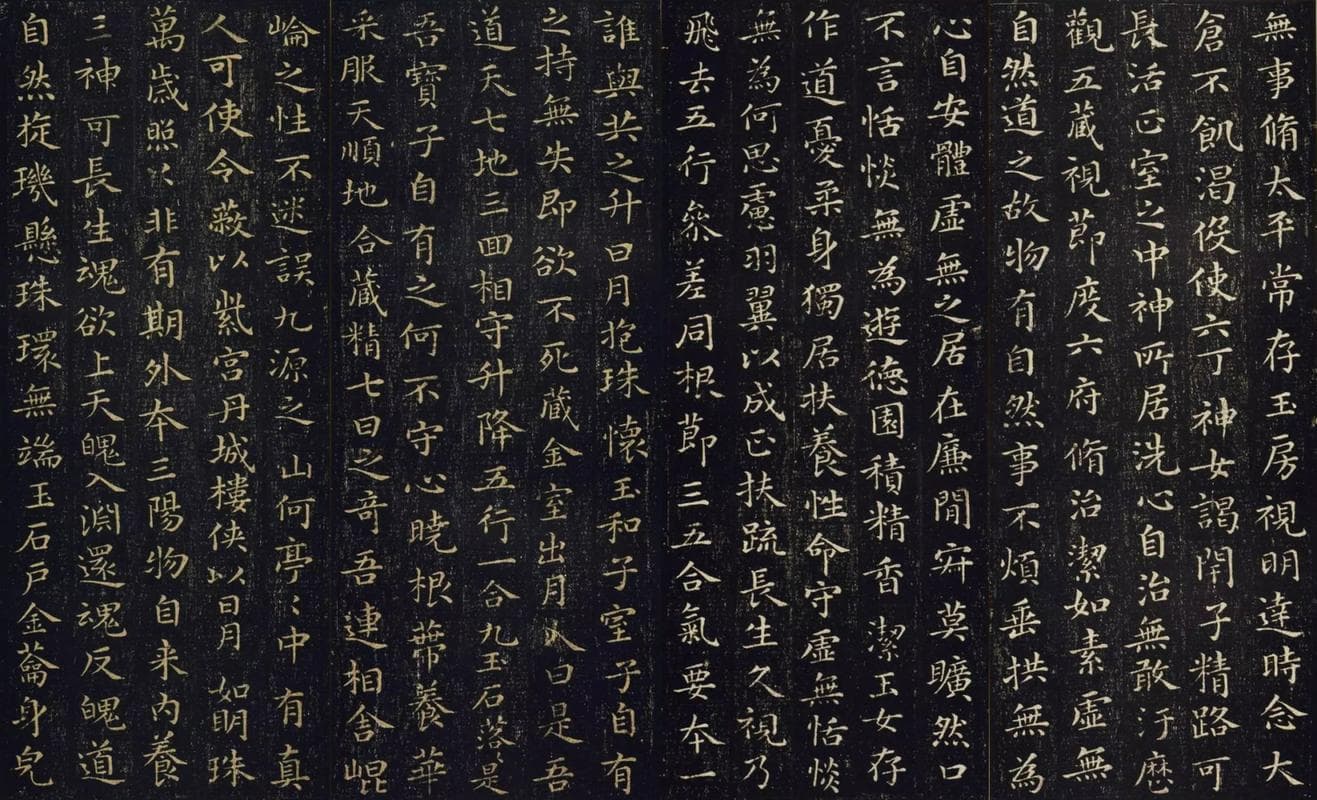 無事脩太平常存玉房視明達時念大
倉不飢渴役使六丁神女謁閇子精路可
長活正室之中神所居洗心自治無敢汙歷
觀五藏視節度六府脩治潔如素虛無
自然道之故物有自然事不煩垂拱無為
心自安體虛無之居在廉間寂莫曠然口
不言恬惔無為遊德園積精香潔玉女存
作道憂柔身獨居扶養性命守虛無恬惔
無為何思慮羽翼以成正扶疏長生久視乃
飛去五行參差同根節三五合氣要本一
誰與共之升日月抱珠懷玉和子室子自有
之持無失即欲不死藏金室出月入日是吾
道天七地三回相守升降五行一合九玉石落是
吾寶子自有之何不守心曉根蔕養華
采服天順地合藏精七日之奇吾連相舍崐
崘之性不迷誤九源之山何亭〻中有真
人可使令蔽以紫宮丹城樓俠以日月如明珠
萬歲照〻非有期外本三陽物自来內養
三神可長生魂欲上天魄入淵還魂反魄道
自然旋璣懸珠環無端玉石戶金蘥身完